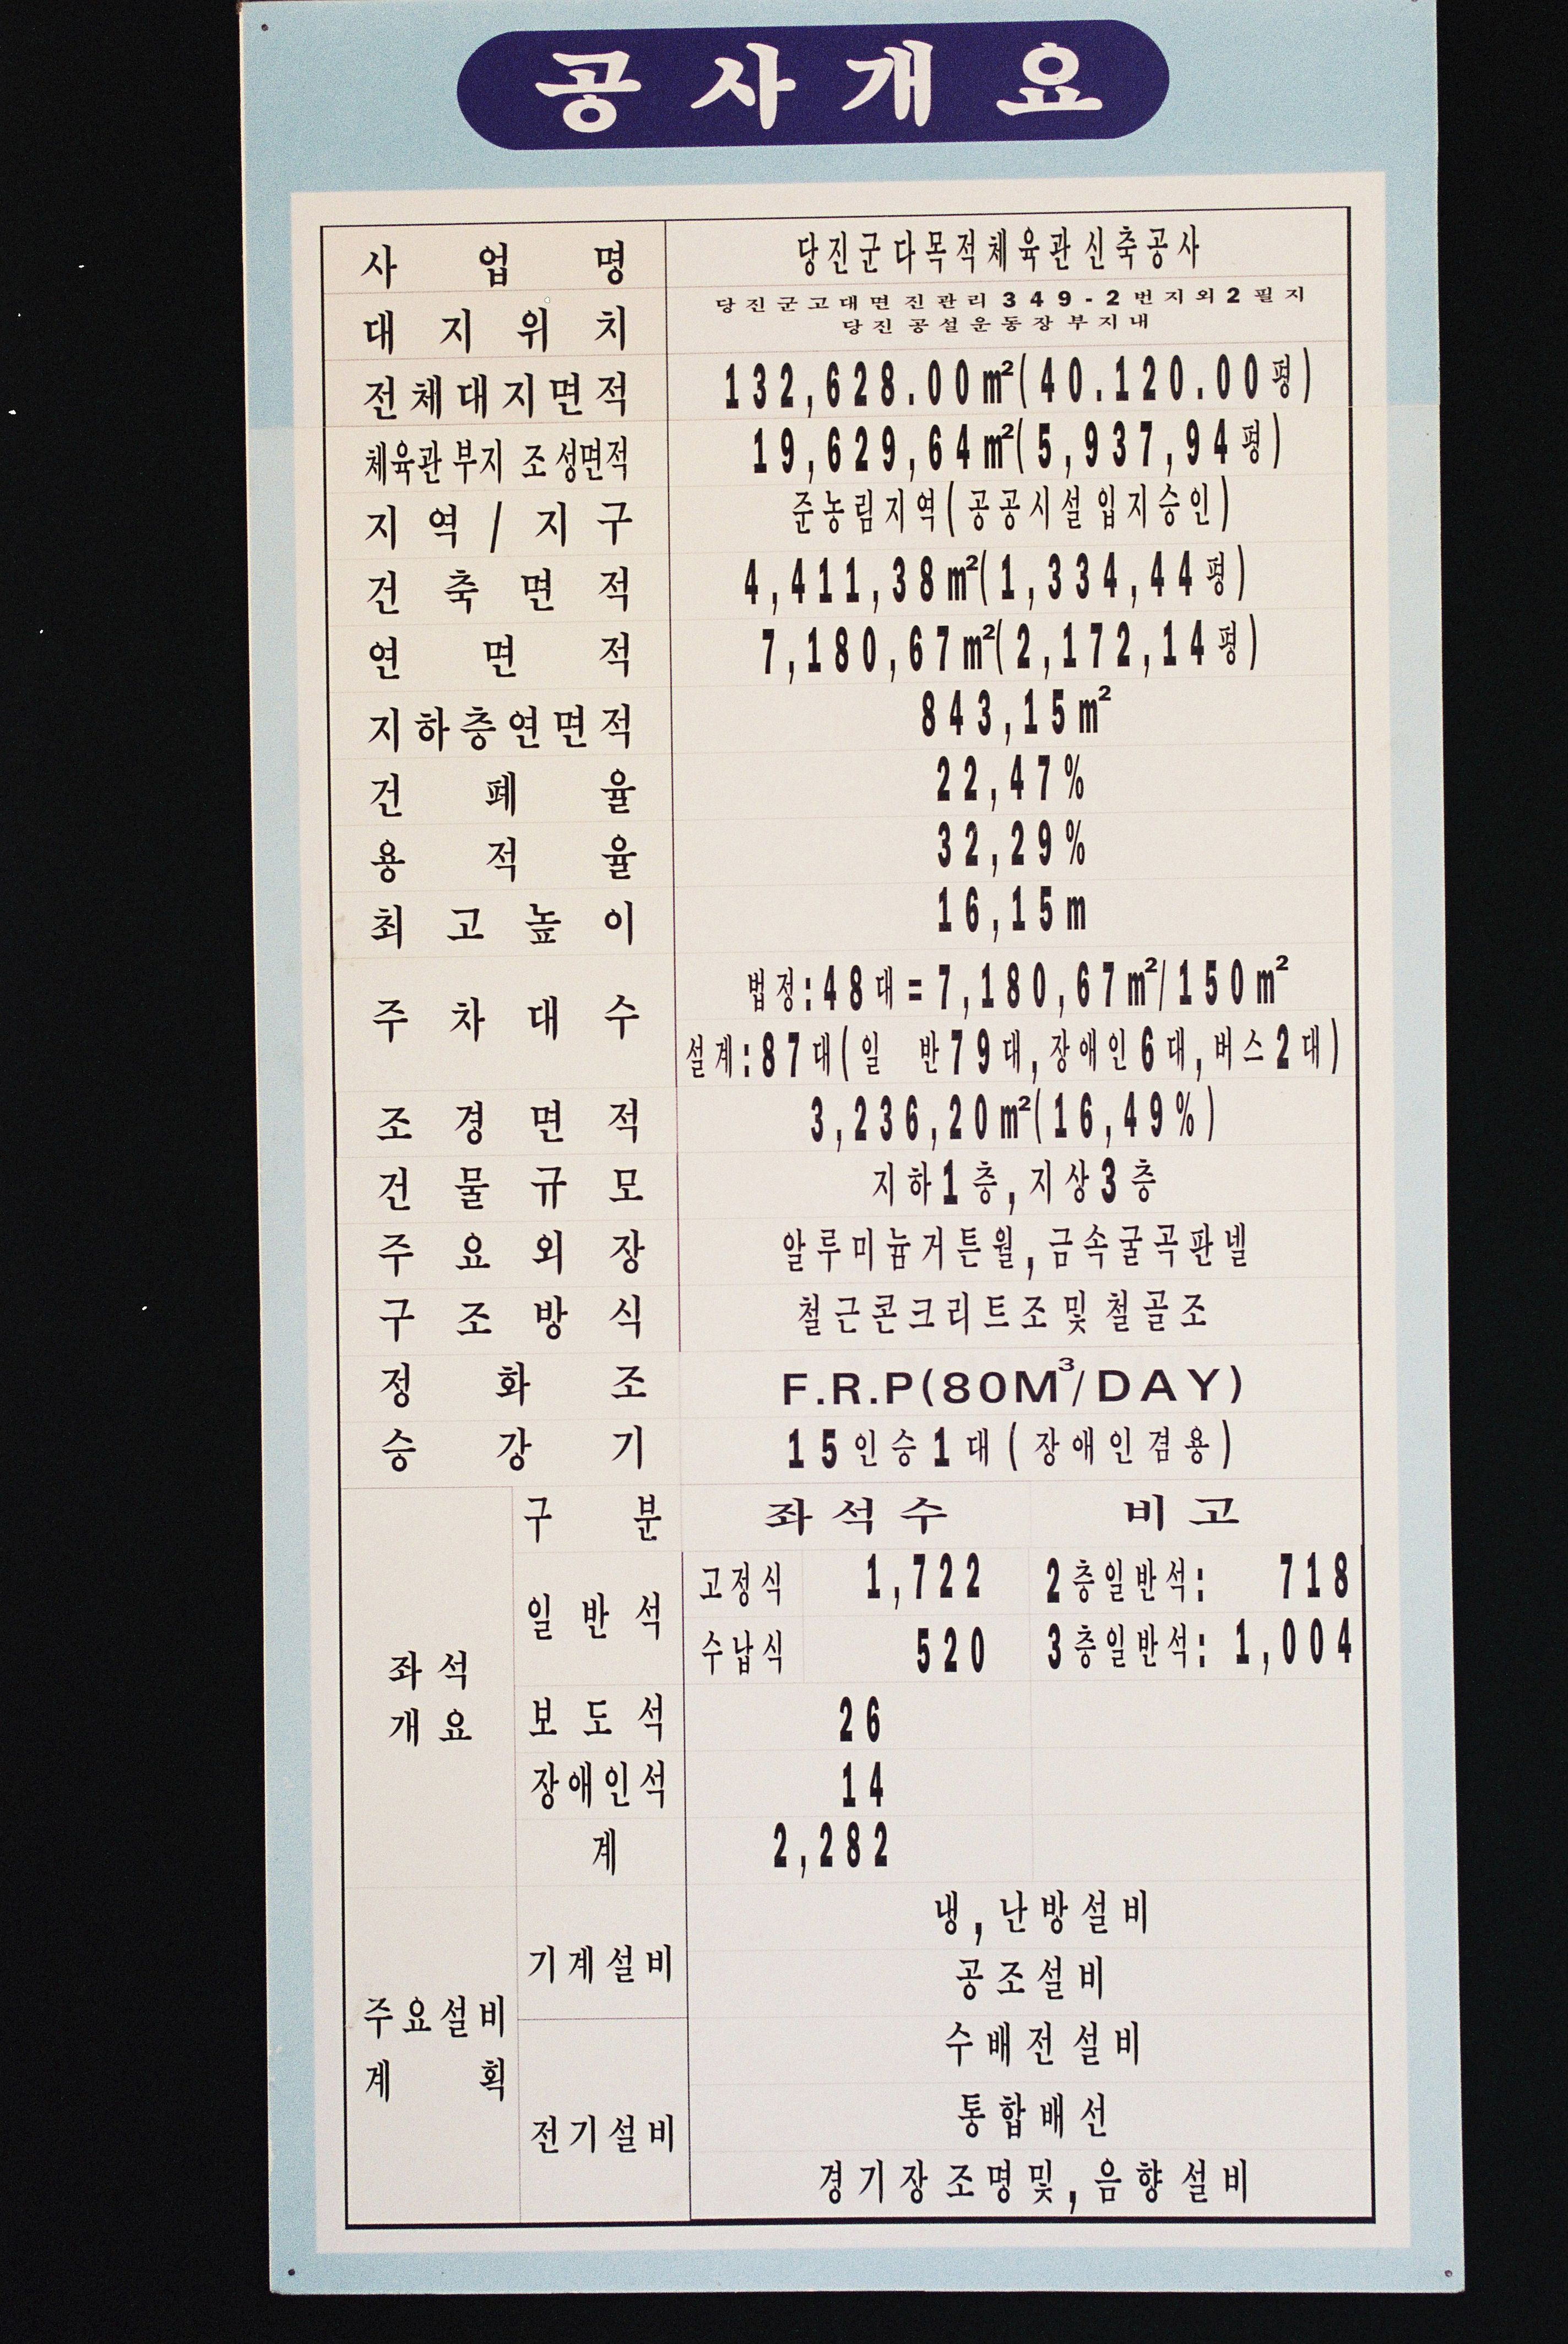 공사개요
사업명 당진군다목적체육관신축공사
대지위치 당진군고대면진관리349-2번지외2필지
당진공설운동장부지내
전체대지면적 132,628.00㎡(40.120.00평)
체육관부지 조성면적 19,629,64㎡(5,937,94평)
지역/지구 준농림지역(공공시설입지승인)
건축면적 4,411,38㎡(1,334,44평)
연면적 7,180,67㎡(2,172,14평)
지하층연면적 843,15㎡
건폐율 22,47%
용적율 32,29%
최고높이 16,15m
주차대수 법정:48대=7,180,67㎡/150㎡
설계:87대(일 반79대,장애인6대,버스2대)
조경면적 3,236,20㎡(16,49%)
건물규모 지하1층,지상3층
주요외장 알루미늄거튼월,금속굴곡판넬
구조방식 철근콘크리트조및철골조
정화조 F.R.P(80M³/DAY)
승강기 15인승1대(장애인겸용)
구분 좌석수 비고
일반석 고정식 1,722 2층일반석: 718
수납식 520 3층일반석: 1,004
좌석
개요
보도석 26
장애인석 14
계 2,282
주요설비
계획
기계설비 냉,난방설비
공조설비
전기설비 수배전설비
통합배선
경기장조명및,음향설비